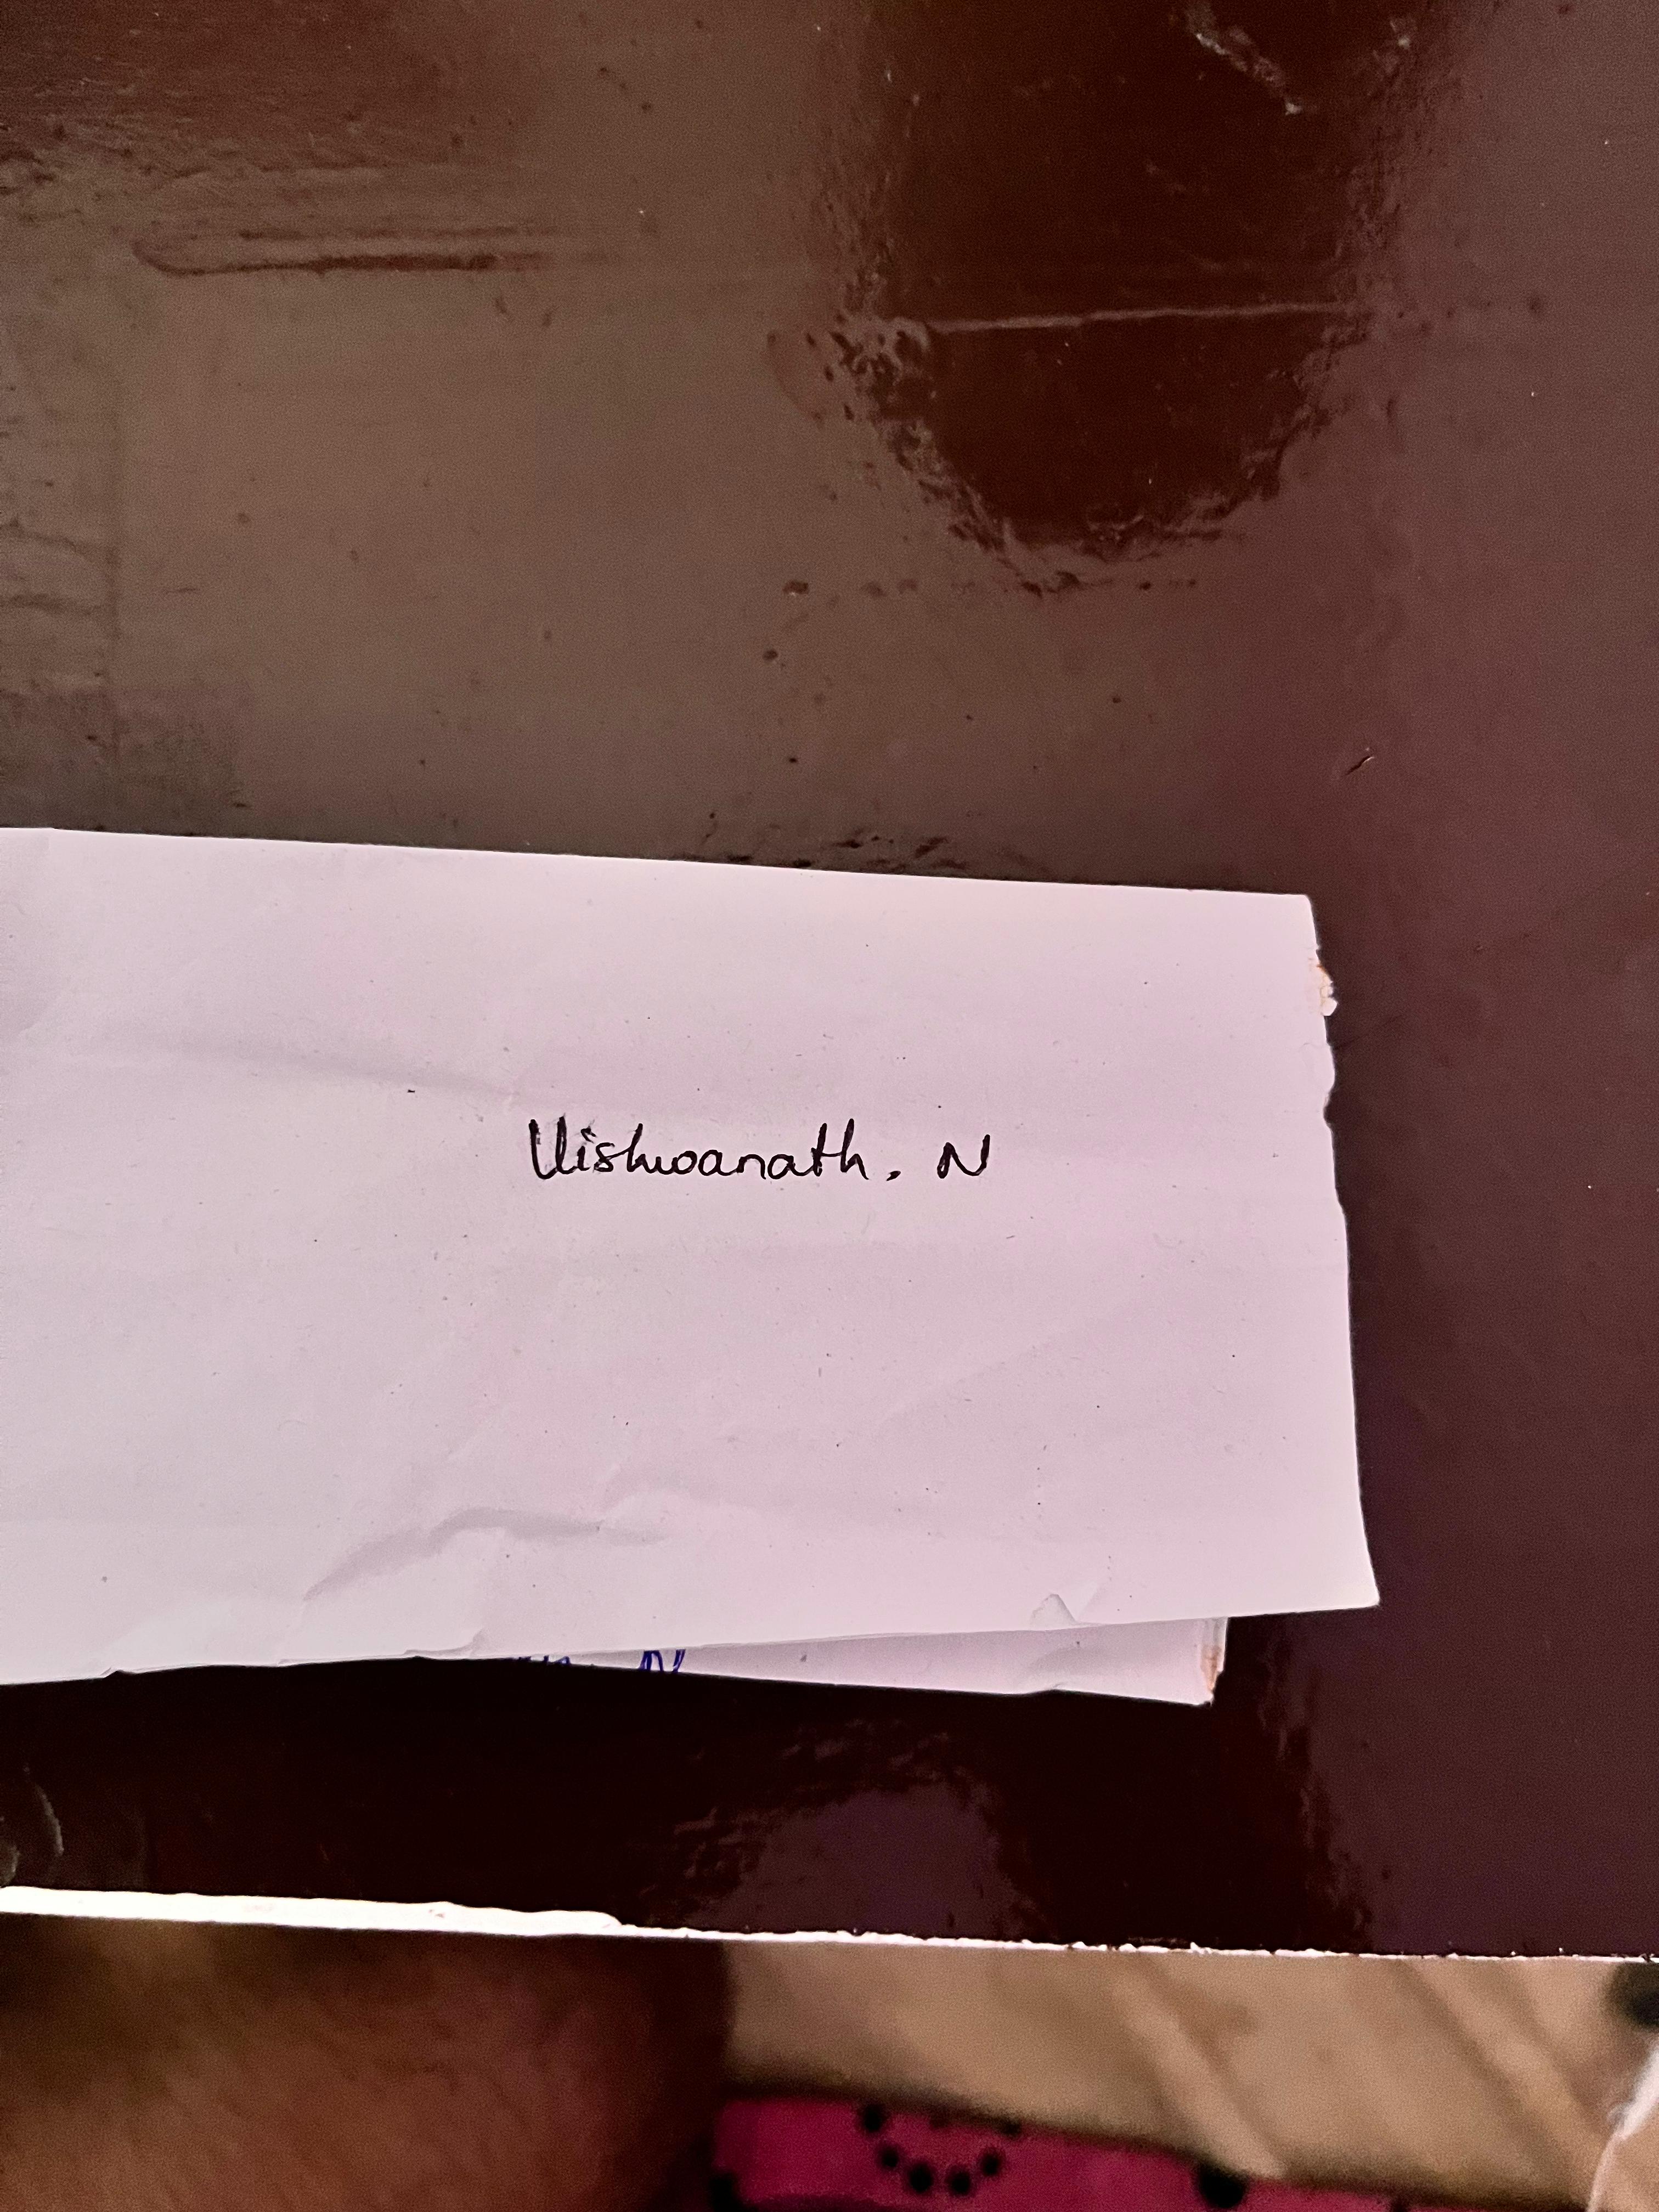 Vishwanath. N
N